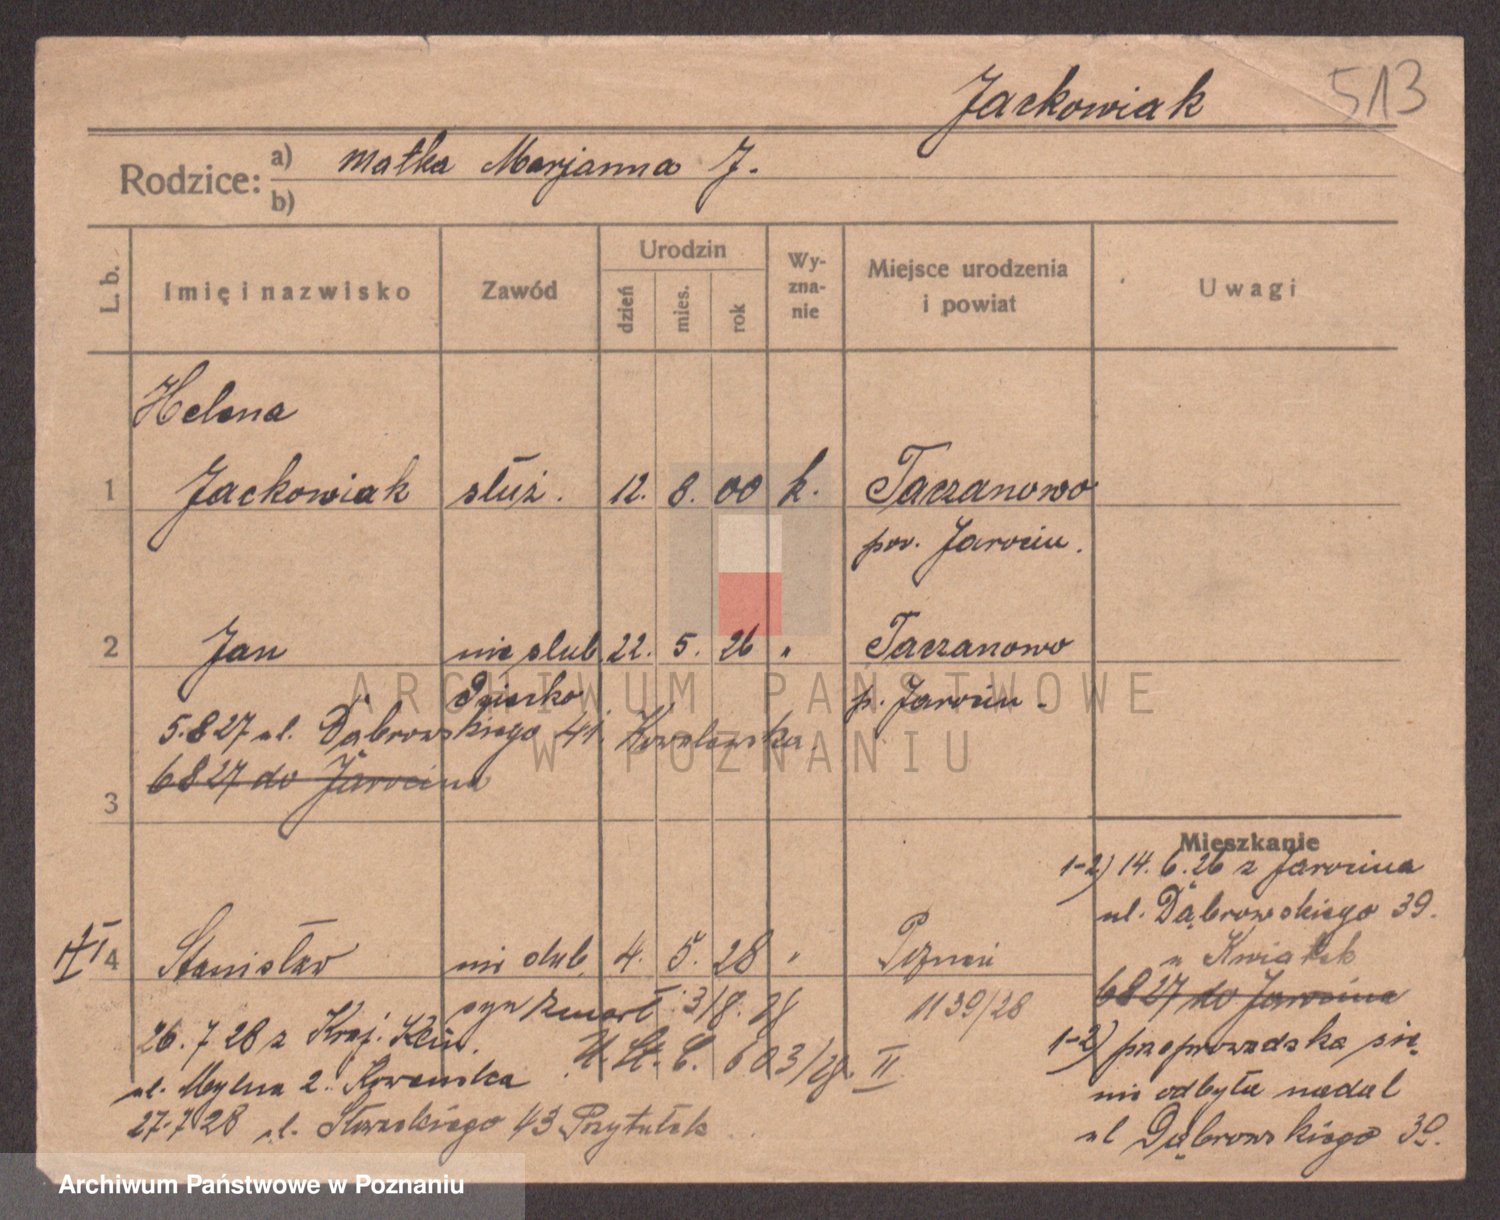 Jackowiak 513
Rodzice: a) matka Marjanna J.
b)
L. b. Imię i nazwisko Zawód Urodzin dzień mies. rok Wyznanie Miejsce urodzenia i powiat Uwagi
Helena
1 Jackowiak służ. 12. 8. 00 k. Taczanowo
pow. Jarocin.
2 Jan nieślub. 22. 5. 26 " Taczanowo
dziecko p. Jarocin.
5.8 27 ul. Dąbrowskiego 41 Kowalewska
6 8 27 do Jarocina
3
Mieszkanie
1-2) 14. 6. 26 z Jarocina
ul. Dąbrowskiego 39.
u Kwiatek
6 8 27 do Jarocina
1-2) przeprowadzka się
nie odbyła nadal
ul Dąbrowskiego 39.
4 Stanisław nieślub. 4. 5. 28 " Poznań
syn zmarł 3/8. 28 1139/28
U. St. C. 603/28. II
26. 7 28 z Kraj. Klin.
ul. Mylna 2.
27.7 28 ul. Słowackiego 43 Przytułek
ARCHIWUM PAŃSTWOWE
W POZNANIU
Archiwum Państwowe w Poznaniu